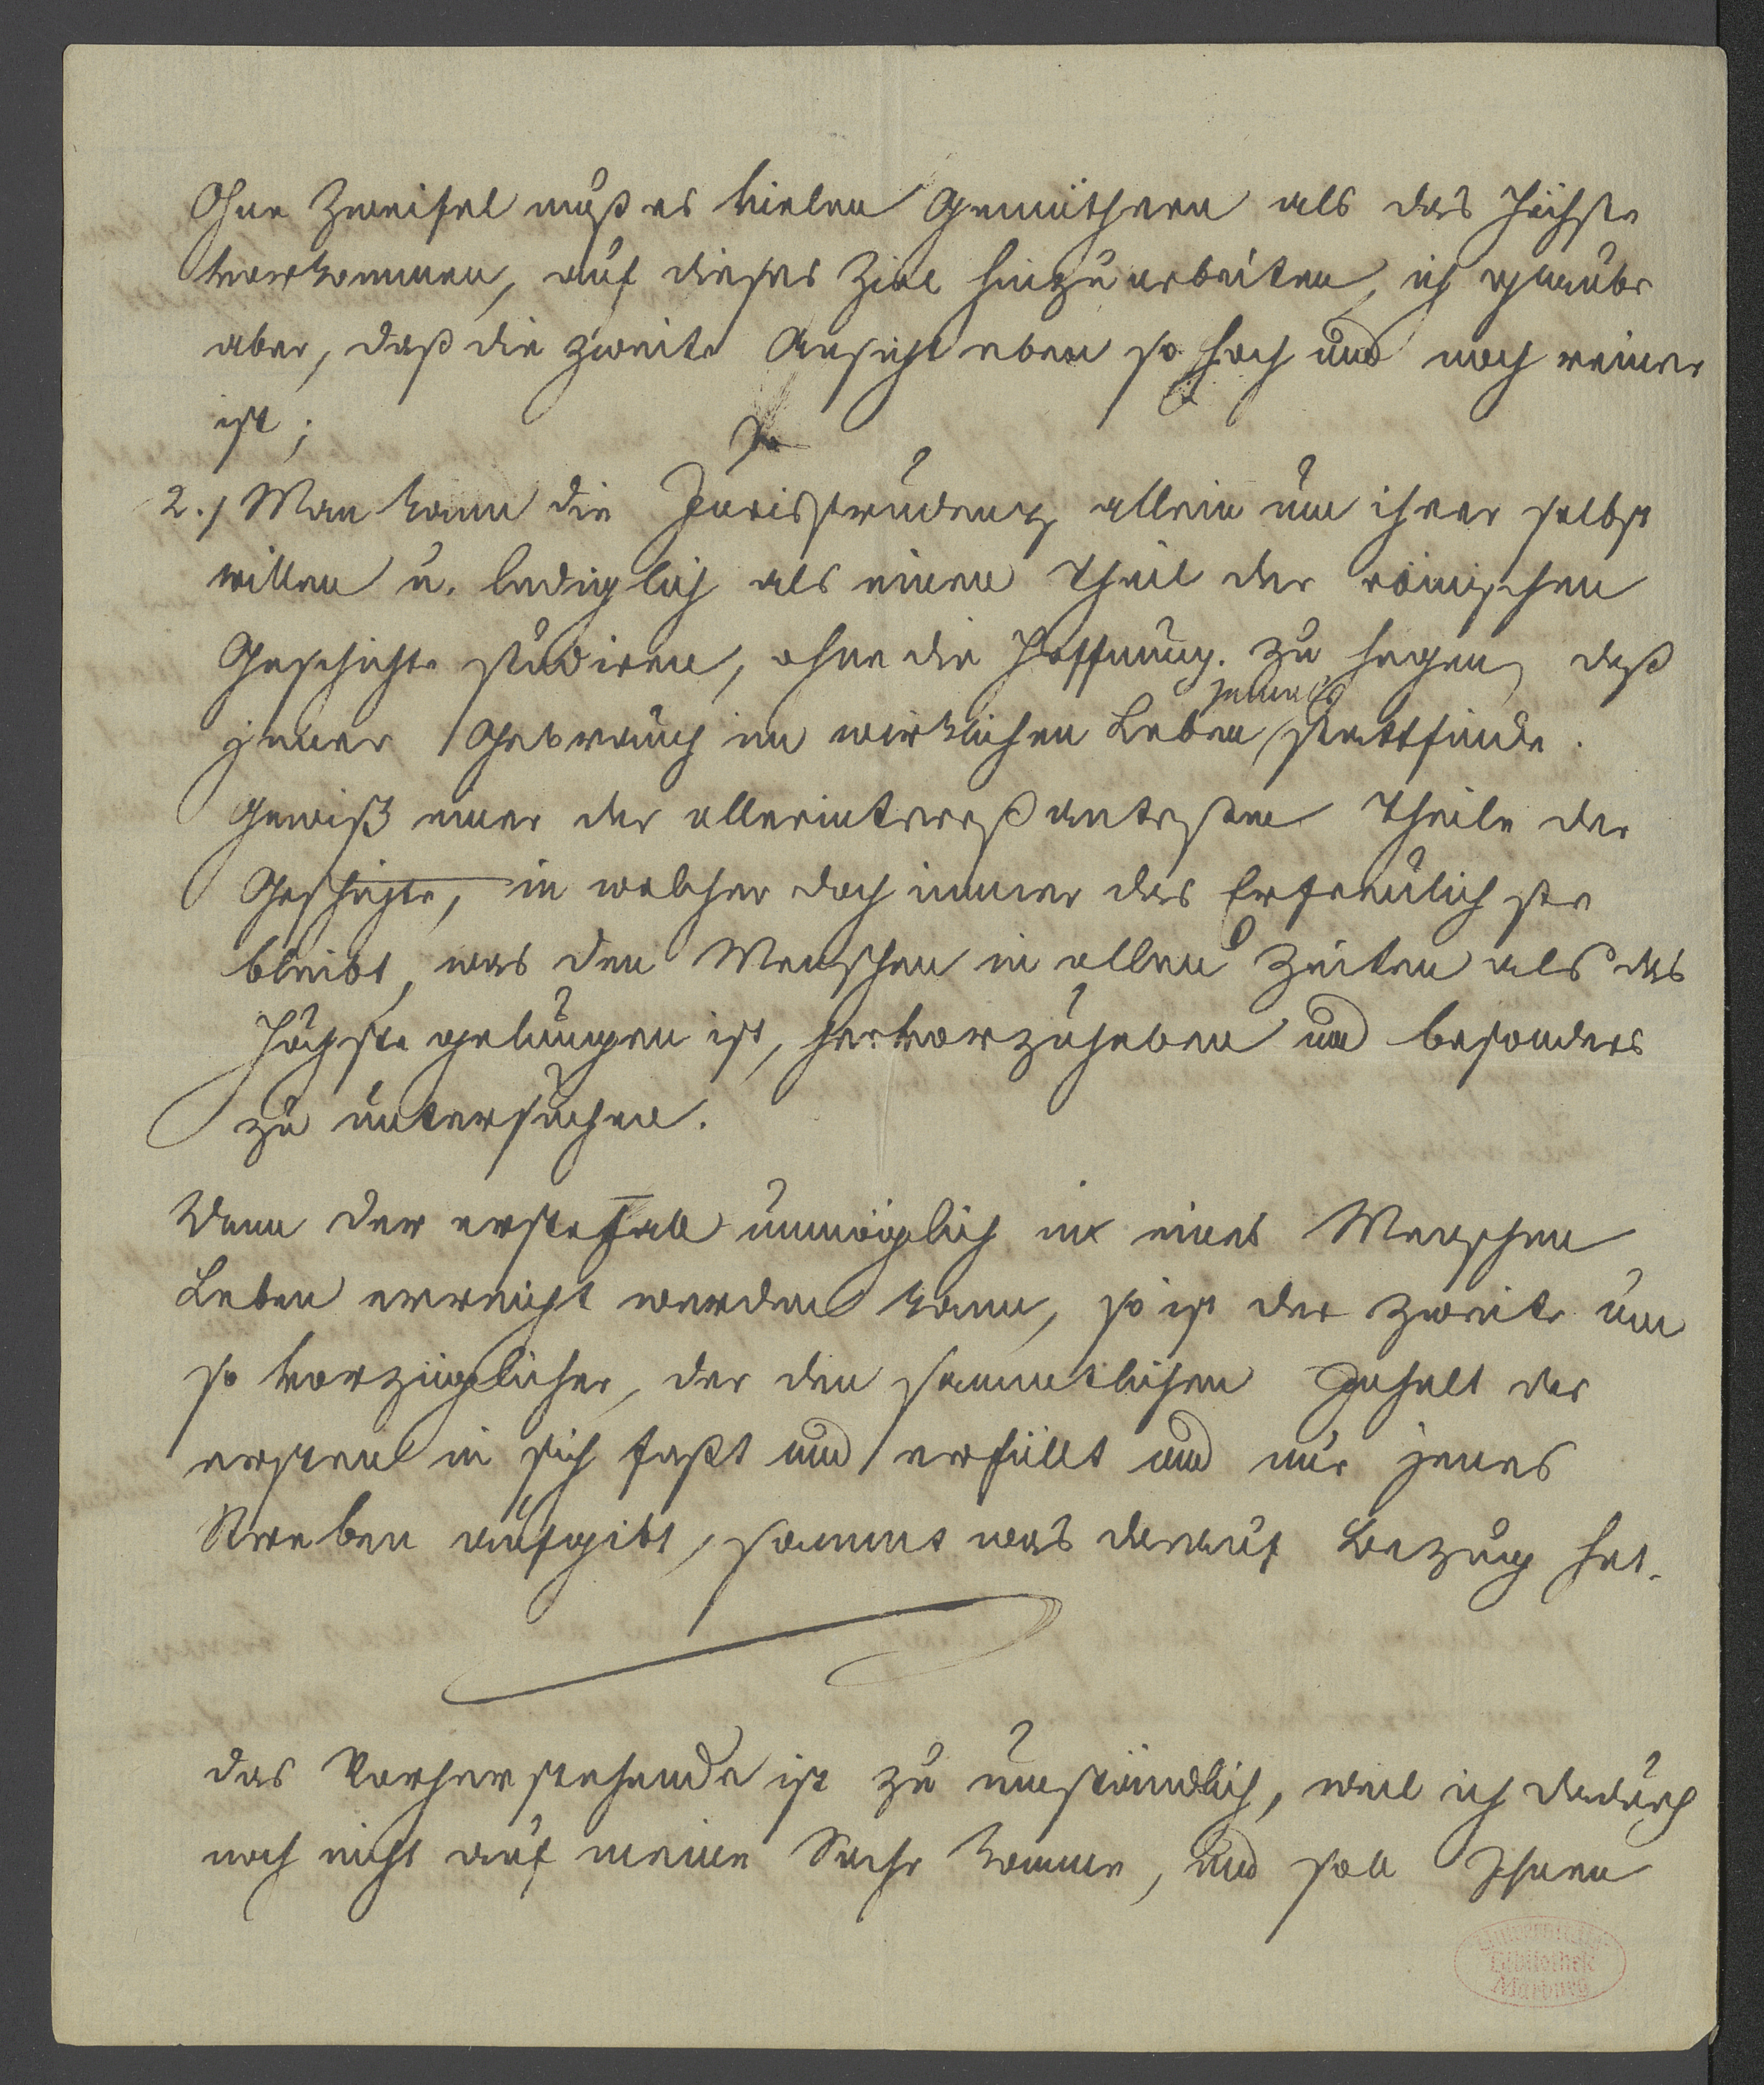 Ohne Zweifel muß es vielen Gemüthern als das Höchste
vorkommen, auf dieses Ziel hinzuarbeiten, ich glaube
aber, daß die zweite Ansicht eben so hoch und noch reiner
ist;
2.) Man kann die Jurisprudenz allein um ihrer selbst
willen u. lediglich als einen Theil der römischen
Geschichte studiren, ohne die Hoffnung zu hegen, daß
jemals
jener Gebrauch im wirklichen Leben stattfinde.
Gewiß einer der allerinteressantesten Theile der
Geschichte, in welcher doch immer das Erfreulichste
bleibt, was den Menschen in allen Zeiten als das
Höchste gelungen ist, hervorzuheben und besonders
zu untersuchen.
Wenn der erste Fall unmöglich in eines Menschen
Leben erreicht werden kann, so ist der zweite um
so vorzüglicher, der den sämmtlichen Inhalt des
ersten in sich faßt und erfüllt und nur jenes
Streben aufgibt, sammt was darauf Bezug hat.
Das Vorherstehende ist zu umständlich, weil ich dadurch
noch nicht auf meine Sache komme, und soll Ihnen
Universitäts-
Bibliothek
Marburg